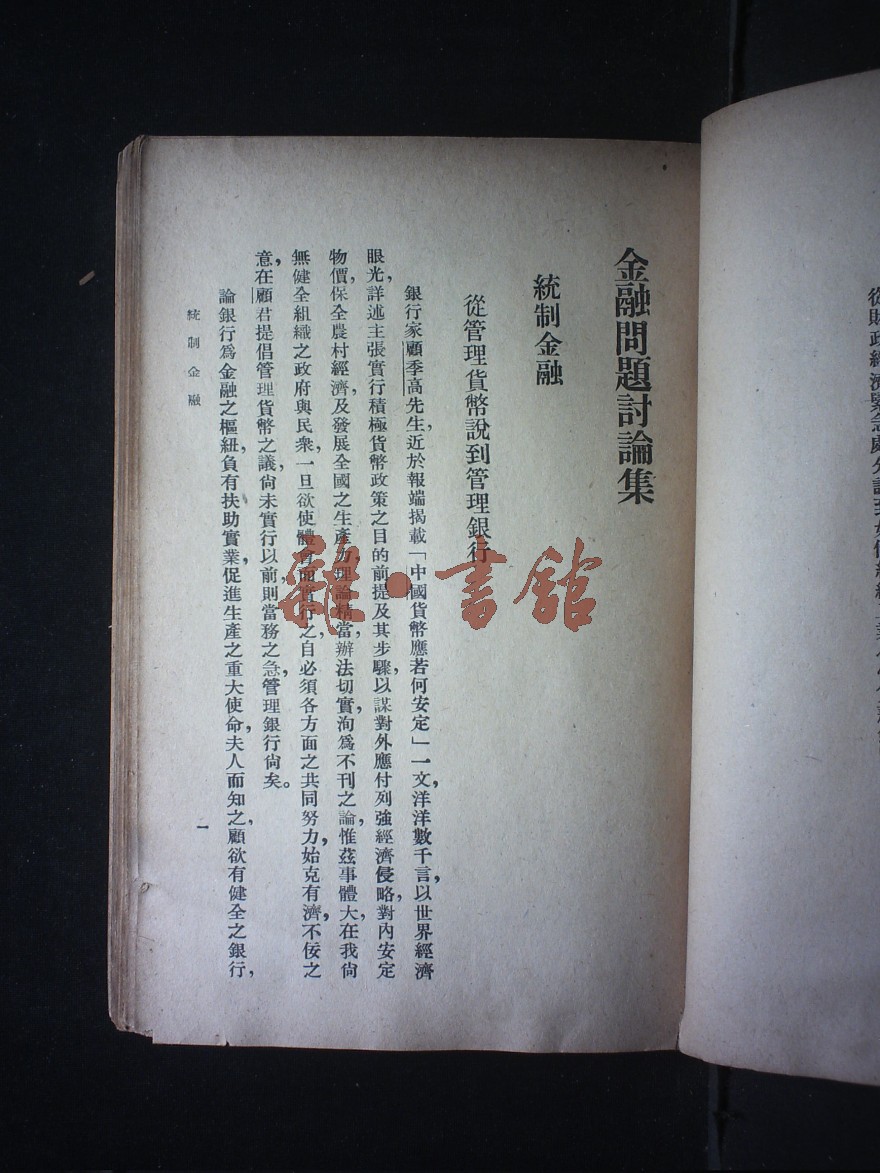 金融問題討論集
統制金融
從管理貨幣說到管理銀行
銀行家顧季高先生，近於報端揭載「中國貨幣應若何安定」一文，洋洋數千言，以世界經濟
眼光，詳述主張實行積極貨幣政策之目的前提及其步驟，以謀對外應付列強經濟侵略，對內安定
物價，保全農村經濟，及發展全國之生產力，理論精當，辦法切實，洵爲不刊之論，惟茲事體大，在我尙
無健全組織之政府與民衆，一旦欲使體會而實行之，自必須各方面之共同努力，始克有濟，不佞之
意，在顧君提倡管理貨幣之議，尙未實行以前，則當務之急，管理銀行尙矣。
論銀行爲金融之樞紐，負有扶助實業，促進生產之重大使命，夫人而知之，顧欲有健全之銀行，
統制金融
一
雜·書館